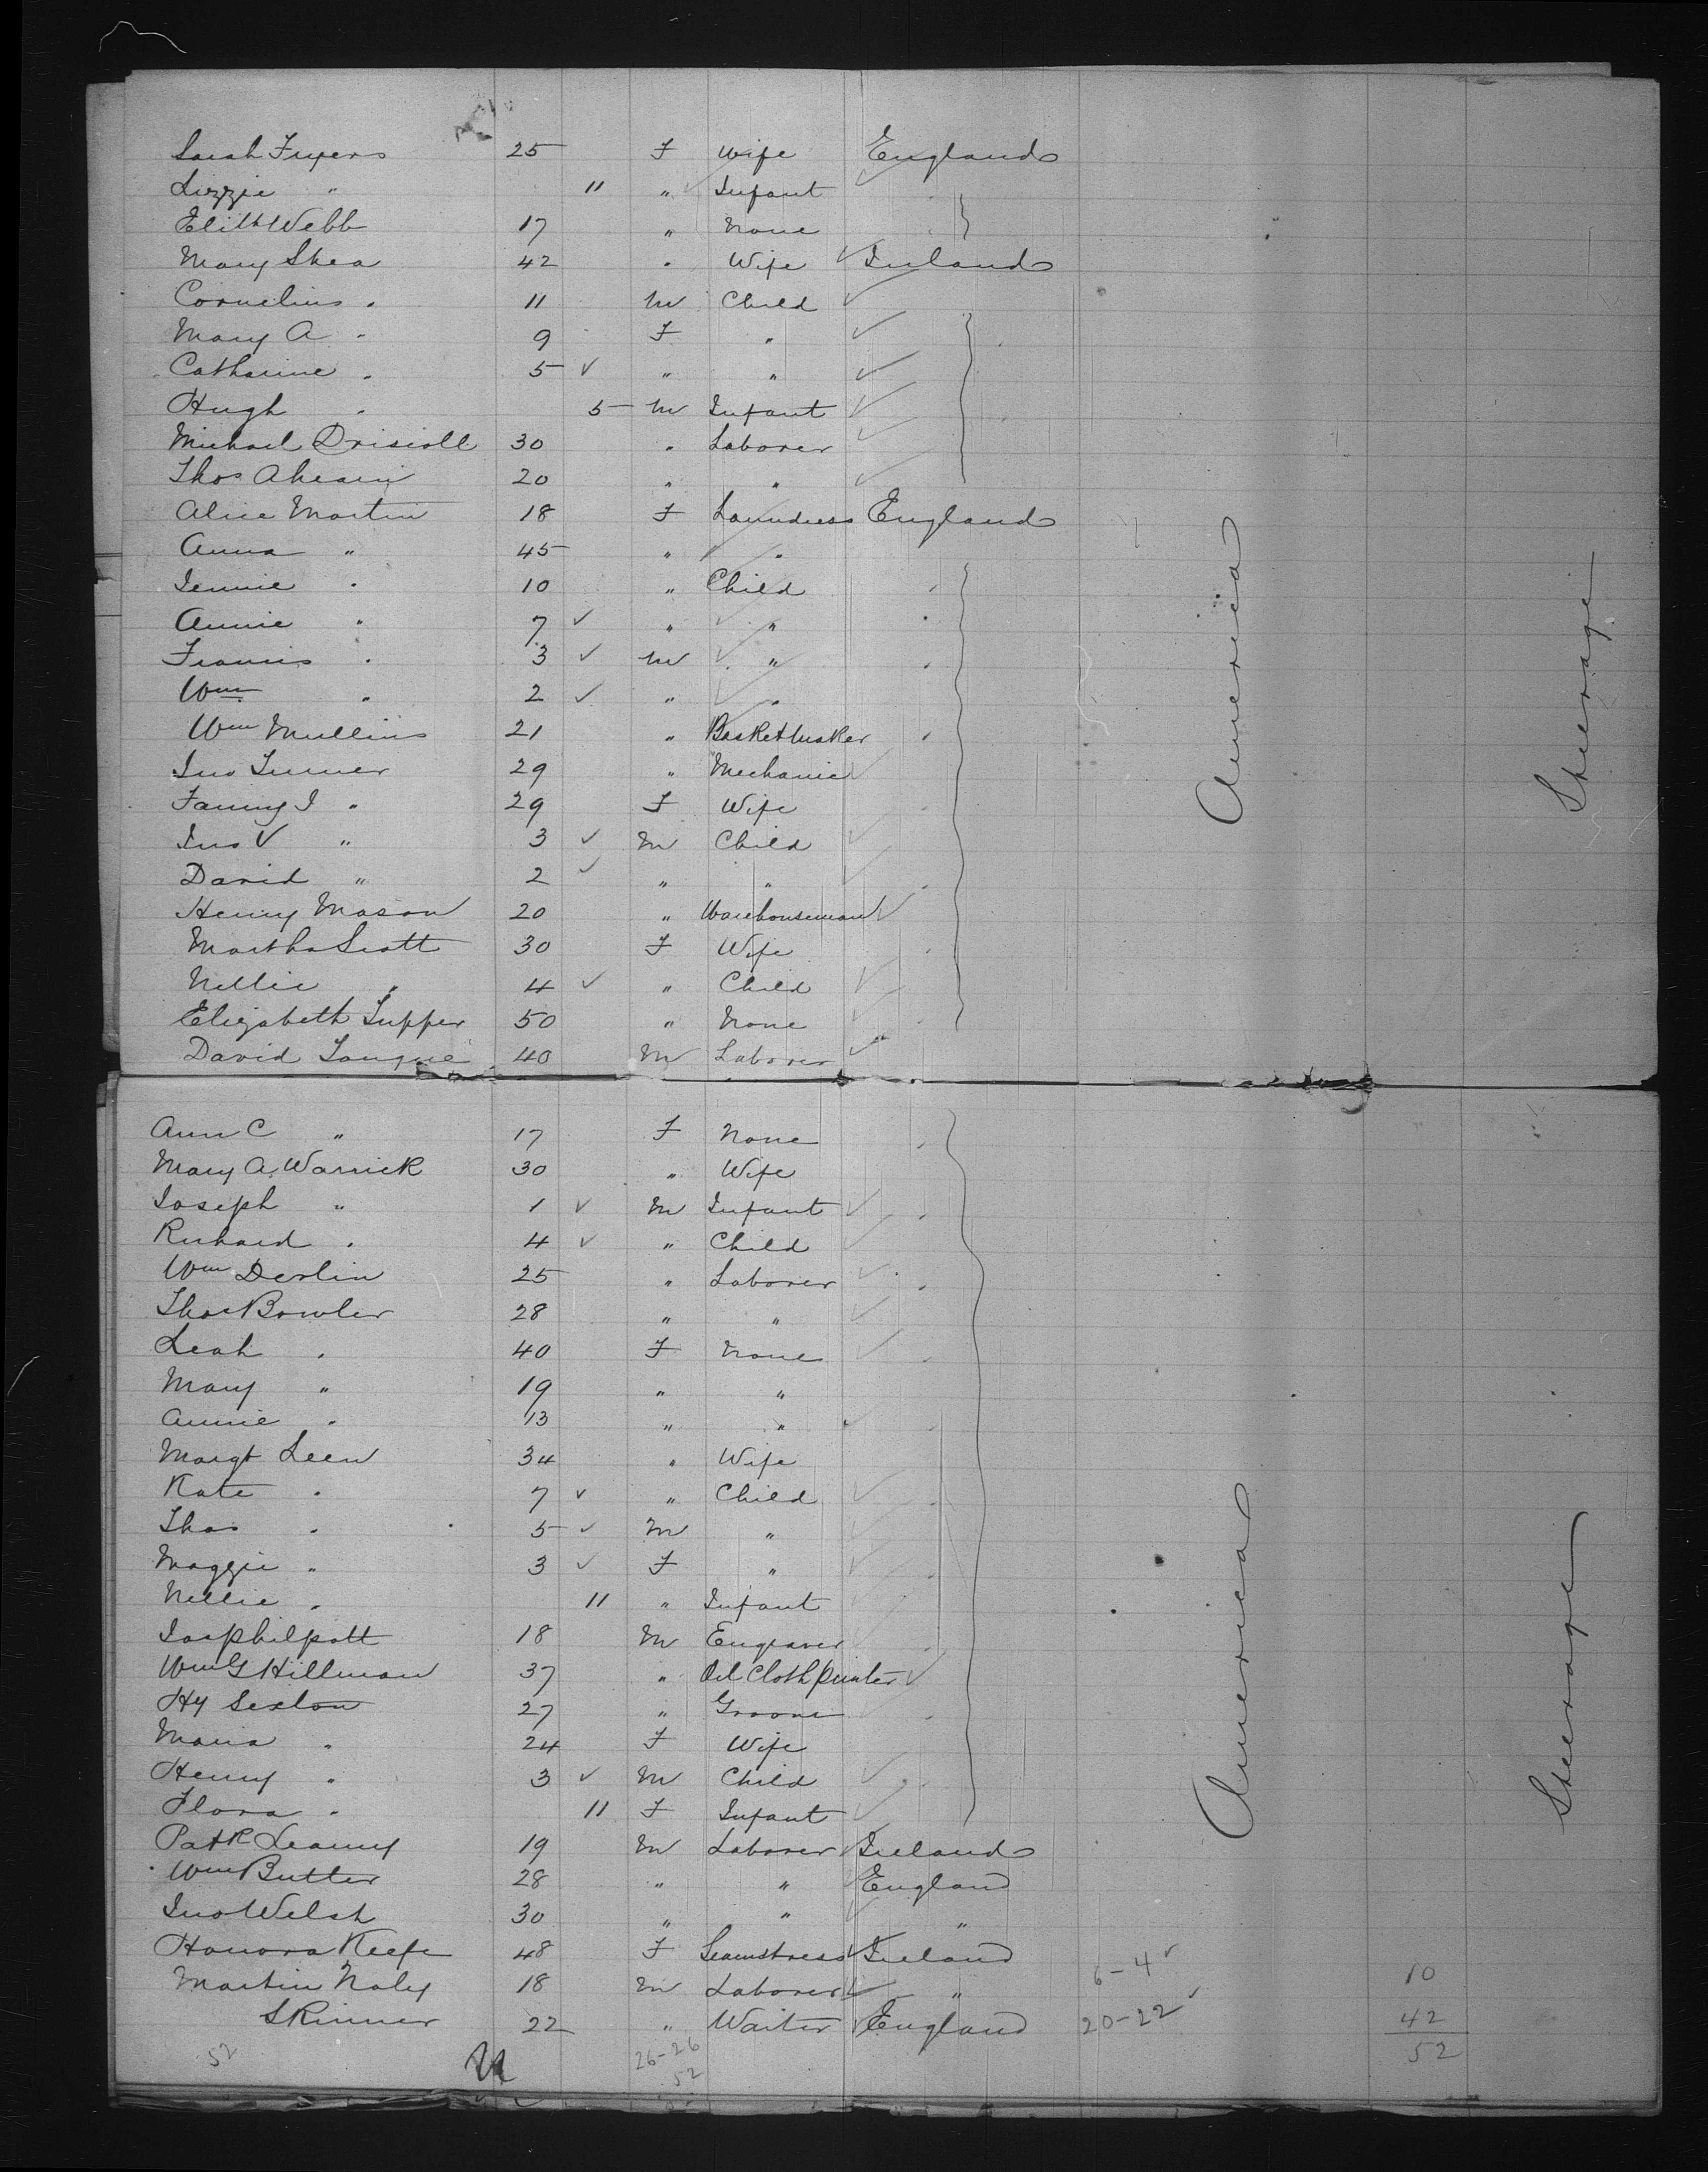 Sarah Fryers 25 F Wife England
Lizzie " 11 " Infant
Elith Webb 17 " None
Mary Shea 42 " Wife Ireland
Cornelius " 11 M Child
Mary A " 9 F "
Catharine " 5 " "
Hugh " 5 M Infant
Michael Driscoll 30 " Laborer
Thos Ahearn 20 " "
Alice Martin 18 F Laundress England
Anna " 45 " "
Jennie " 10 " Child
Annie " 7 " "
Francis " 3 M "
Wm " 2 " "
Wm Mullins 21 " Basketmaker
Jno Turner 29 " Mechanic
Fanny J " 29 F Wife
Jno V " 3 M Child
David " 2 " "
Henry Mason 20 " Warehouseman
Martha Scott 30 F Wife
Nellie " 4 " Child
Elizabeth Tupper 50 " None
David Tongue 40 M Laborer
America
Steerage
Ann C " 17 F None
Mary A. Warrick 30 " Wife
Joseph " 1 M Infant
Richard " 4 " Child
Wm Devlin 25 " Laborer
Thos Bowler 28 " "
Leah " 40 F None
Mary " 19 " "
Annie " 13 " "
Margt Leen 34 " Wife
Kate " 7 " Child
Thos " 5 M "
Maggie " 3 F "
Nellie " 11 " Infant
Jas Philpott 18 M Engraver
Wm G Hillman 37 " Oil Cloth Printer
Hy Sexton 27 " Groom
Maria " 24 F Wife
Henry " 3 M Child
Flora " 11 F Infant
Patk Leamy 19 M Laborer Ireland
Wm Butler 28 " " England
Jno Welsh 30 " " "
Honora Keefe 48 F Seamstress Ireland
Martin Naly 18 M Laborer " 6-4 10
Skinner 22 " Waiter England 20-22 42
52 26-26 52
52
America
Steerage